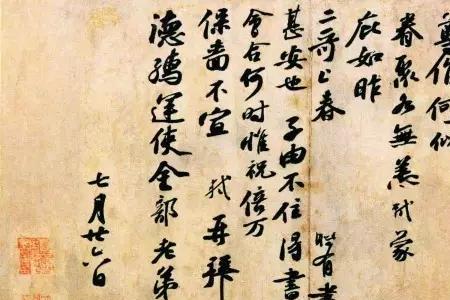 何似
眷聚各無恙軾蒙
庇如昨
二哥上春 有書
甚安也 子由不住得書
會合何時惟祝倍万
保嗇不宣 軾再拜
德孺運使金部老弟
七月廿六日